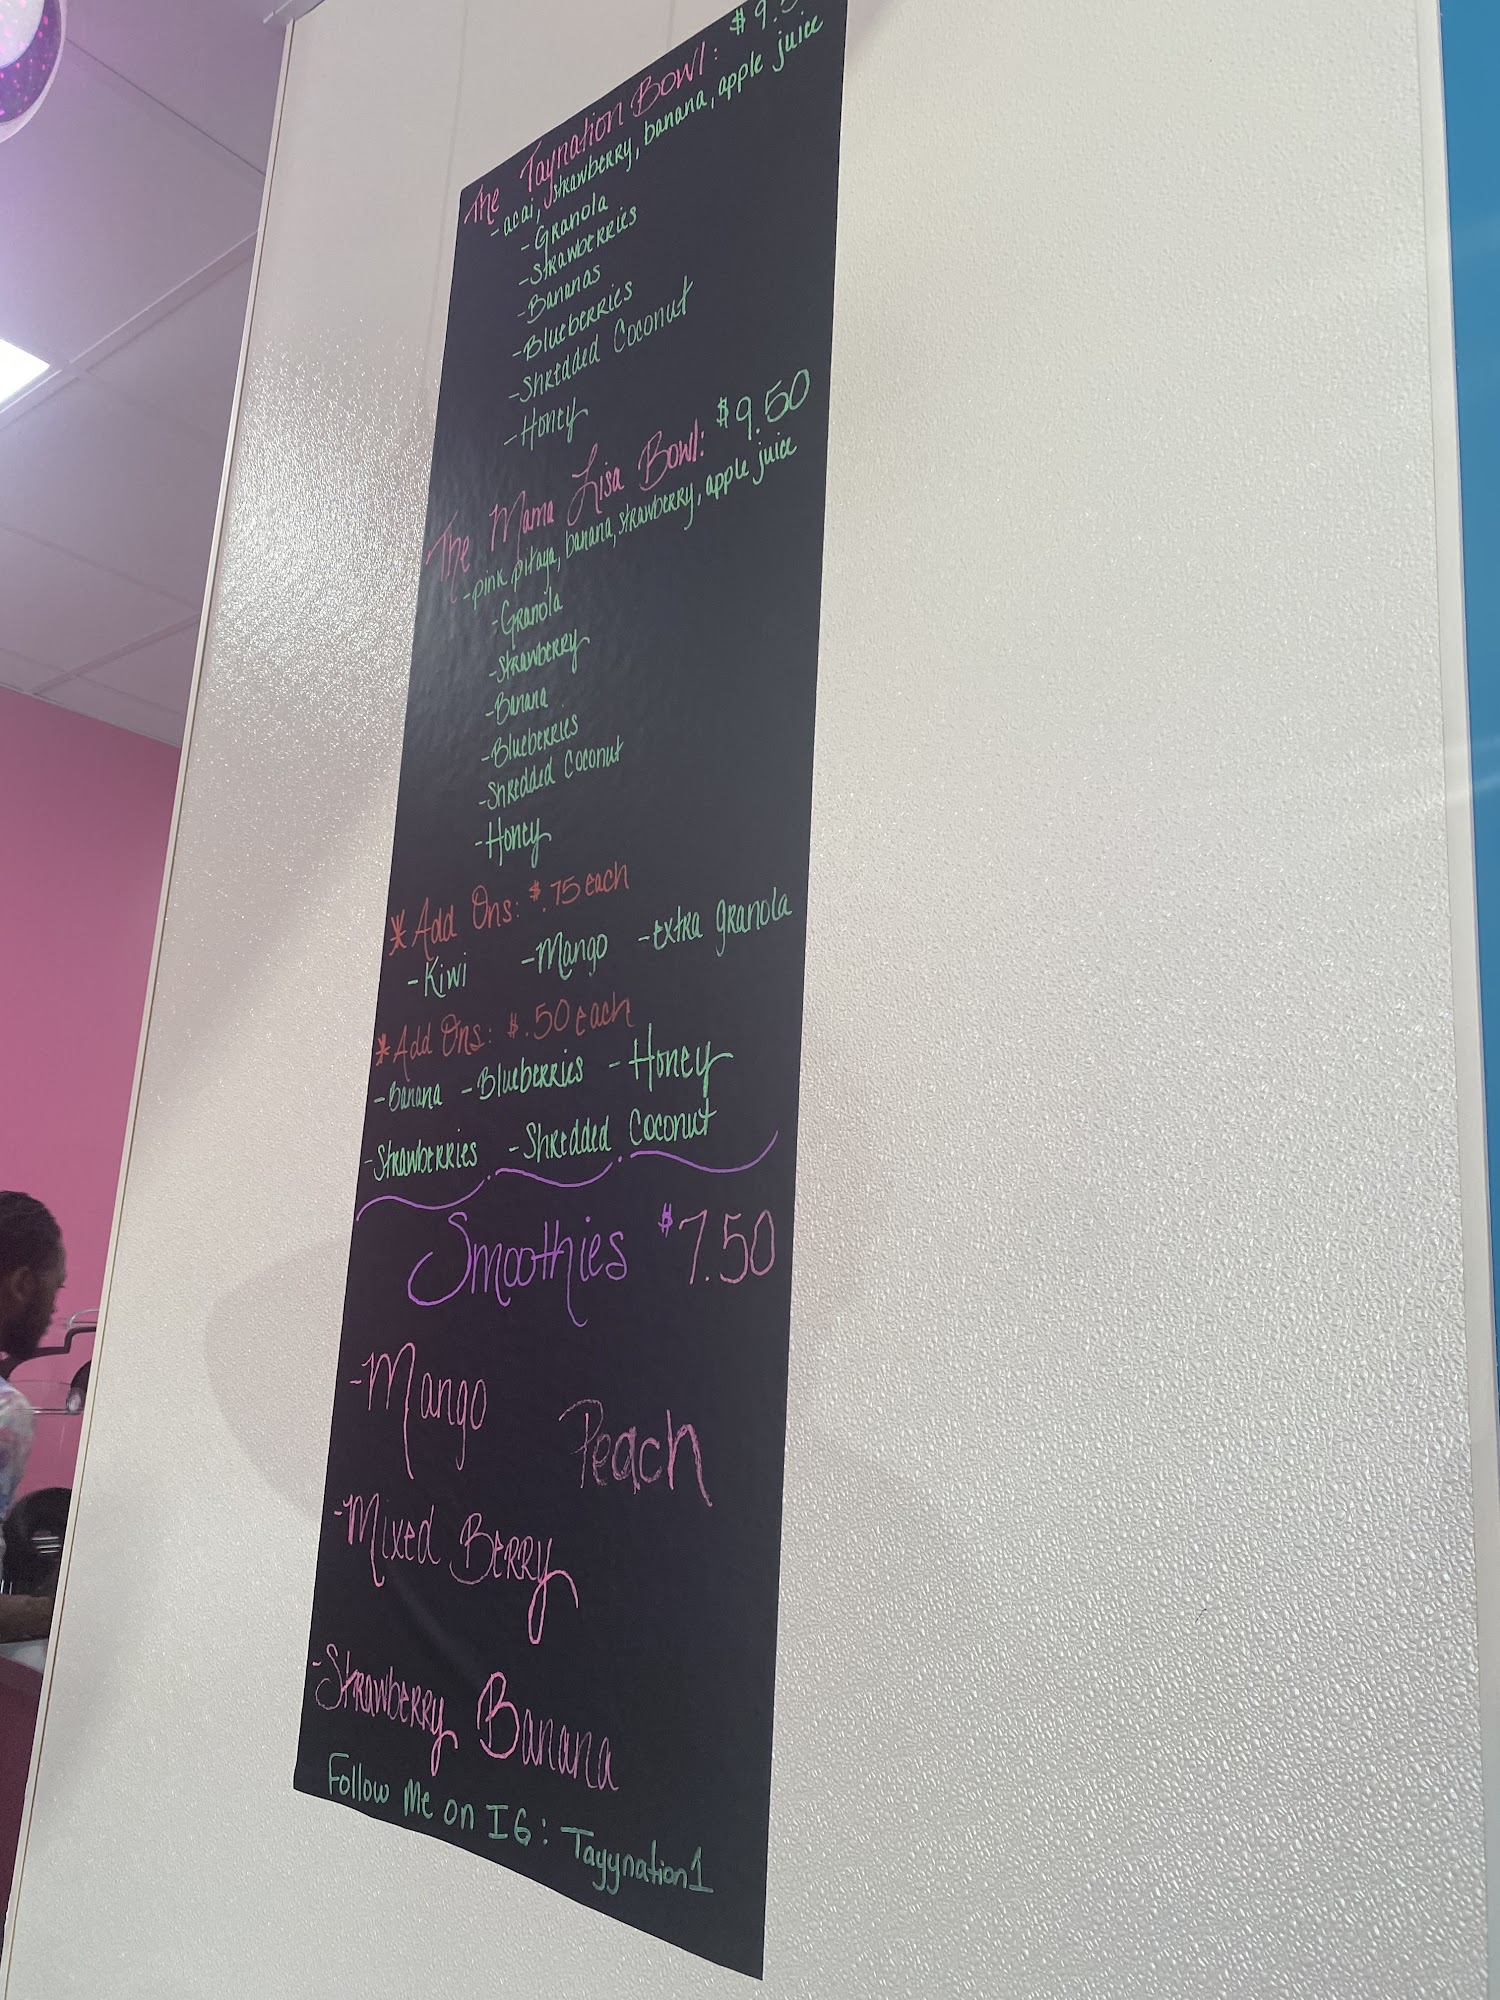 The Taynation Bowl: $9.5
-acai, strawberry, banana, apple juice
-Granola
-Strawberries
-Bananas
-Blueberries
-Shredded Coconut
-Honey
The Mama Lisa Bowl: $9.50
-pink pitaya, banana, strawberry, apple juice
-Granola
-Strawberry
-Banana
-Blueberries
-Shredded Coconut
-Honey
*Add Ons: $.75 each
-Kiwi -Mango -extra granola
*Add Ons: $.50 each
-Banana -Blueberries -Honey
-Strawberries -Shredded Coconut
Smoothies $7.50
-Mango Peach
-Mixed Berry
-Strawberry Banana
Follow Me on IG: Tayynation1